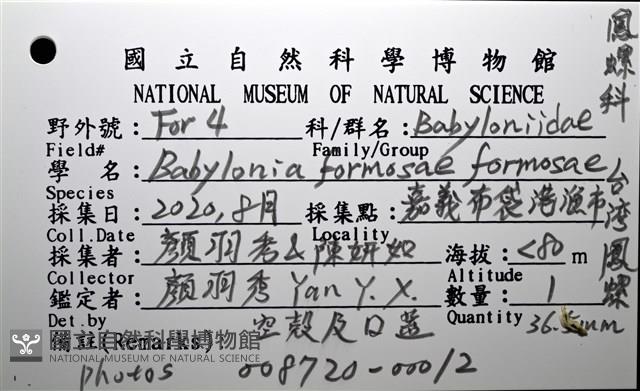 國立自然科學博物館
NATIONAL MUSEUM OF NATURAL SCIENCE
鳳螺科
野外號：For 4 科/群名：Babyloniidae
Field# Family/Group
學 名：Babylonia formosae formosae
台灣鳳螺
Species
採集日：2020,8月 採集點：嘉義布袋港漁市
Coll.Date Locality
採集者：顏羽秀&陳妍如 海拔：<80 m
Collector Altitude
鑑定者：顏羽秀 Yan Y. X. 數量：1
Det.by 空殼及口蓋 Quantity 36.55mm
備註(Remarks)
國立自然科學博物館
NATIONAL MUSEUM OF NATURAL SCIENCE
photos 008720-00012